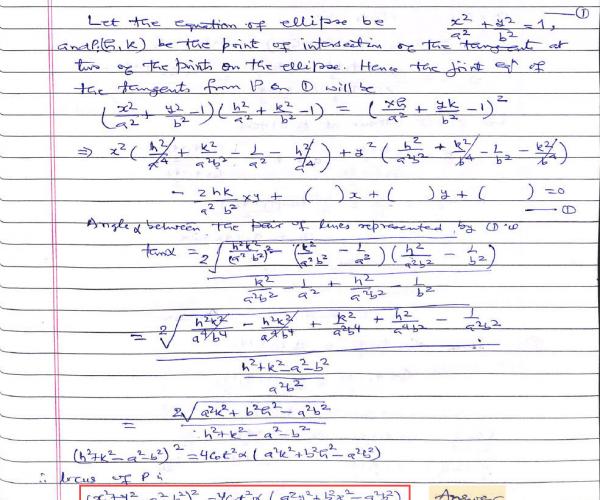 Let the equation of ellipse be x²/a² + y²/b² = 1, —①
and P(h, k) be the point of intersection of the tangents at
two of the points on the ellipse. Hence the joint eqn of
the tangents from P on ① will be
(x²/a² + y²/b² - 1)(h²/a² + k²/b² - 1) = (xh/a² + yk/b² - 1)²
⇒ x²(h²/a⁴ + k²/a²b² - 1/a² - h²/a⁴) + y²(h²/a²b² + k²/b⁴ - 1/b² - k²/b⁴)
- 2hk/a²b² xy + ( )x + ( )y + ( ) = 0 —①
Angle α between the pair of lines represented by ① is
tanα = 2√(h²k²/(a²b²)² - (k²/a²b² - 1/a²)(h²/a²b² - 1/b²)) / (k²/a²b² - 1/a² + h²/a²b² - 1/b²)
= 2√(h²k²/a⁴b⁴ - h²k²/a⁴b⁴ + k²/a²b⁴ + h²/a⁴b² - 1/a²b²) / ((h²+k²-a²-b²)/a²b²)
= 2√(a²k² + b²h² - a²b²) / (h²+k²-a²-b²)
(h²+k²-a²-b²)² = 4cot²α (a²k²+b²h²-a²b²)
∴ locus of P is
(x²+y²-a²-b²)² = 4cot²α (a²y²+b²x²-a²b²) Answer